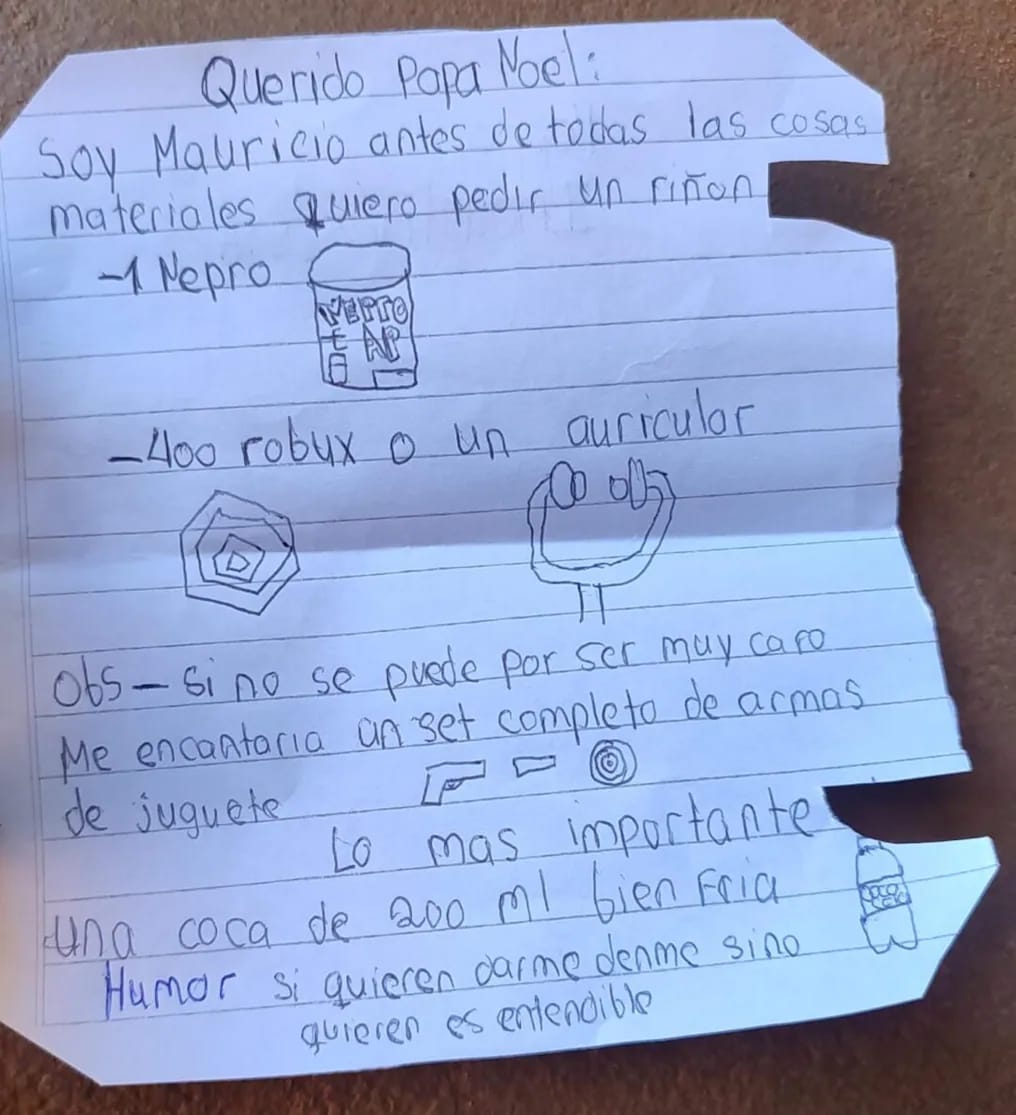 Querido Papa Noel:
Soy Mauricio antes de todas las cosas
materiales quiero pedir un riñon
-1 Nepro
NEPRO
AP
-400 robux o un auricular
Obs- si no se puede por ser muy caro
Me encantaria un set completo de armas
de juguete
Lo mas importante
una coca de 200 ml bien Fria
coca
Humor si quieren darme denme sino
quieren es entendible